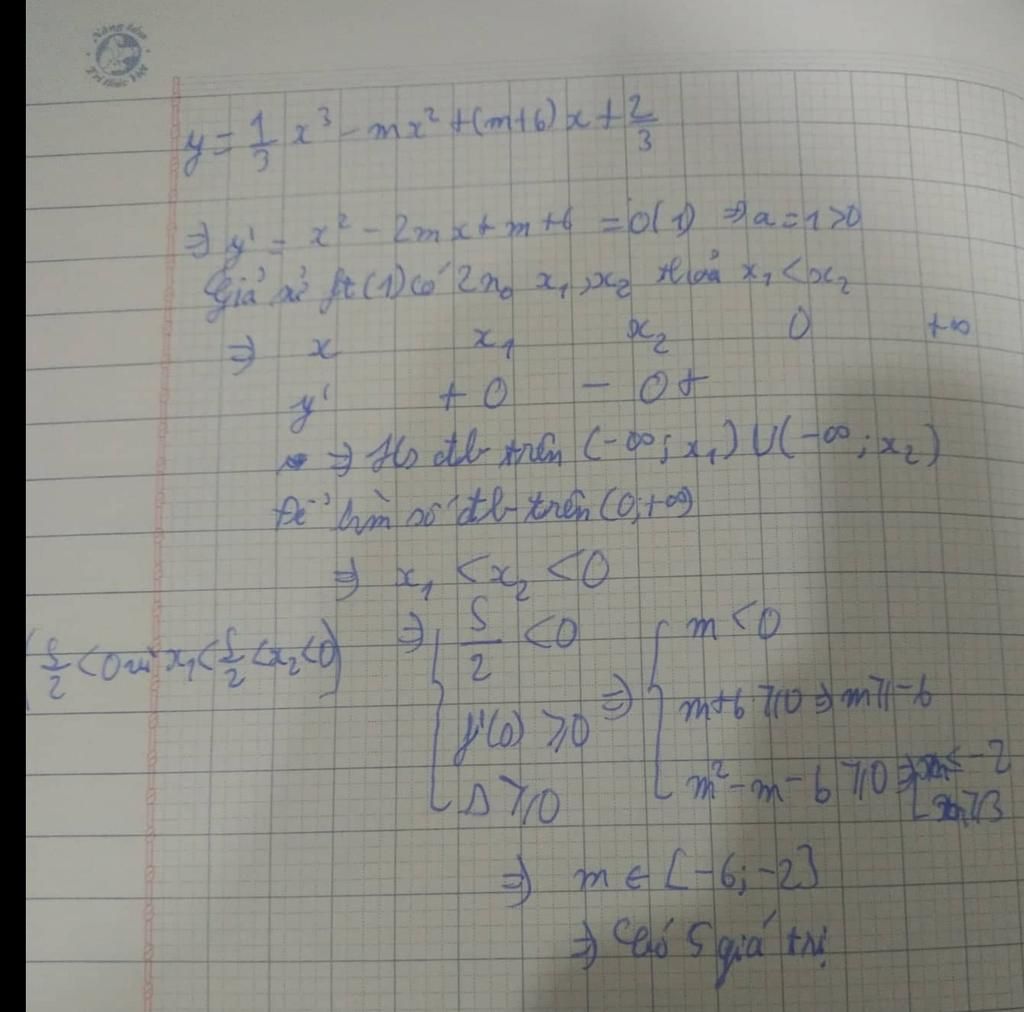 Nâng tầm
Trí thức Việt
y = 1/3 x³ - mx² + (m+6)x + 2/3
⇒ y' = x² - 2mx + m + 6 = 0 (1) ⇒ a = 1 > 0
Giả sử pt (1) có 2 n₀ x₁, x₂ thoả x₁ < x₂
⇒ x x₁ x₂ 0 +∞
y' + 0 - 0 +
⇒ Hs đb trên (-∞; x₁) ∪ (-∞; x₂)
Để hàm số đb trên (0; +∞)
⇒ x₁ < x₂ < 0
(S/2 < 0 vì x₁ < S/2 < x₂ < 0) ⇒ { S/2 < 0 ⇒ { m < 0
y'(0) ⩾ 0 m + 6 ⩾ 0 ⇒ m ⩾ -6
Δ ⩾ 0 m² - m - 6 ⩾ 0 ⇒ [ m ≤ -2
m ⩾ 3
⇒ m ∈ [-6; -2]
⇒ Có 5 giá trị